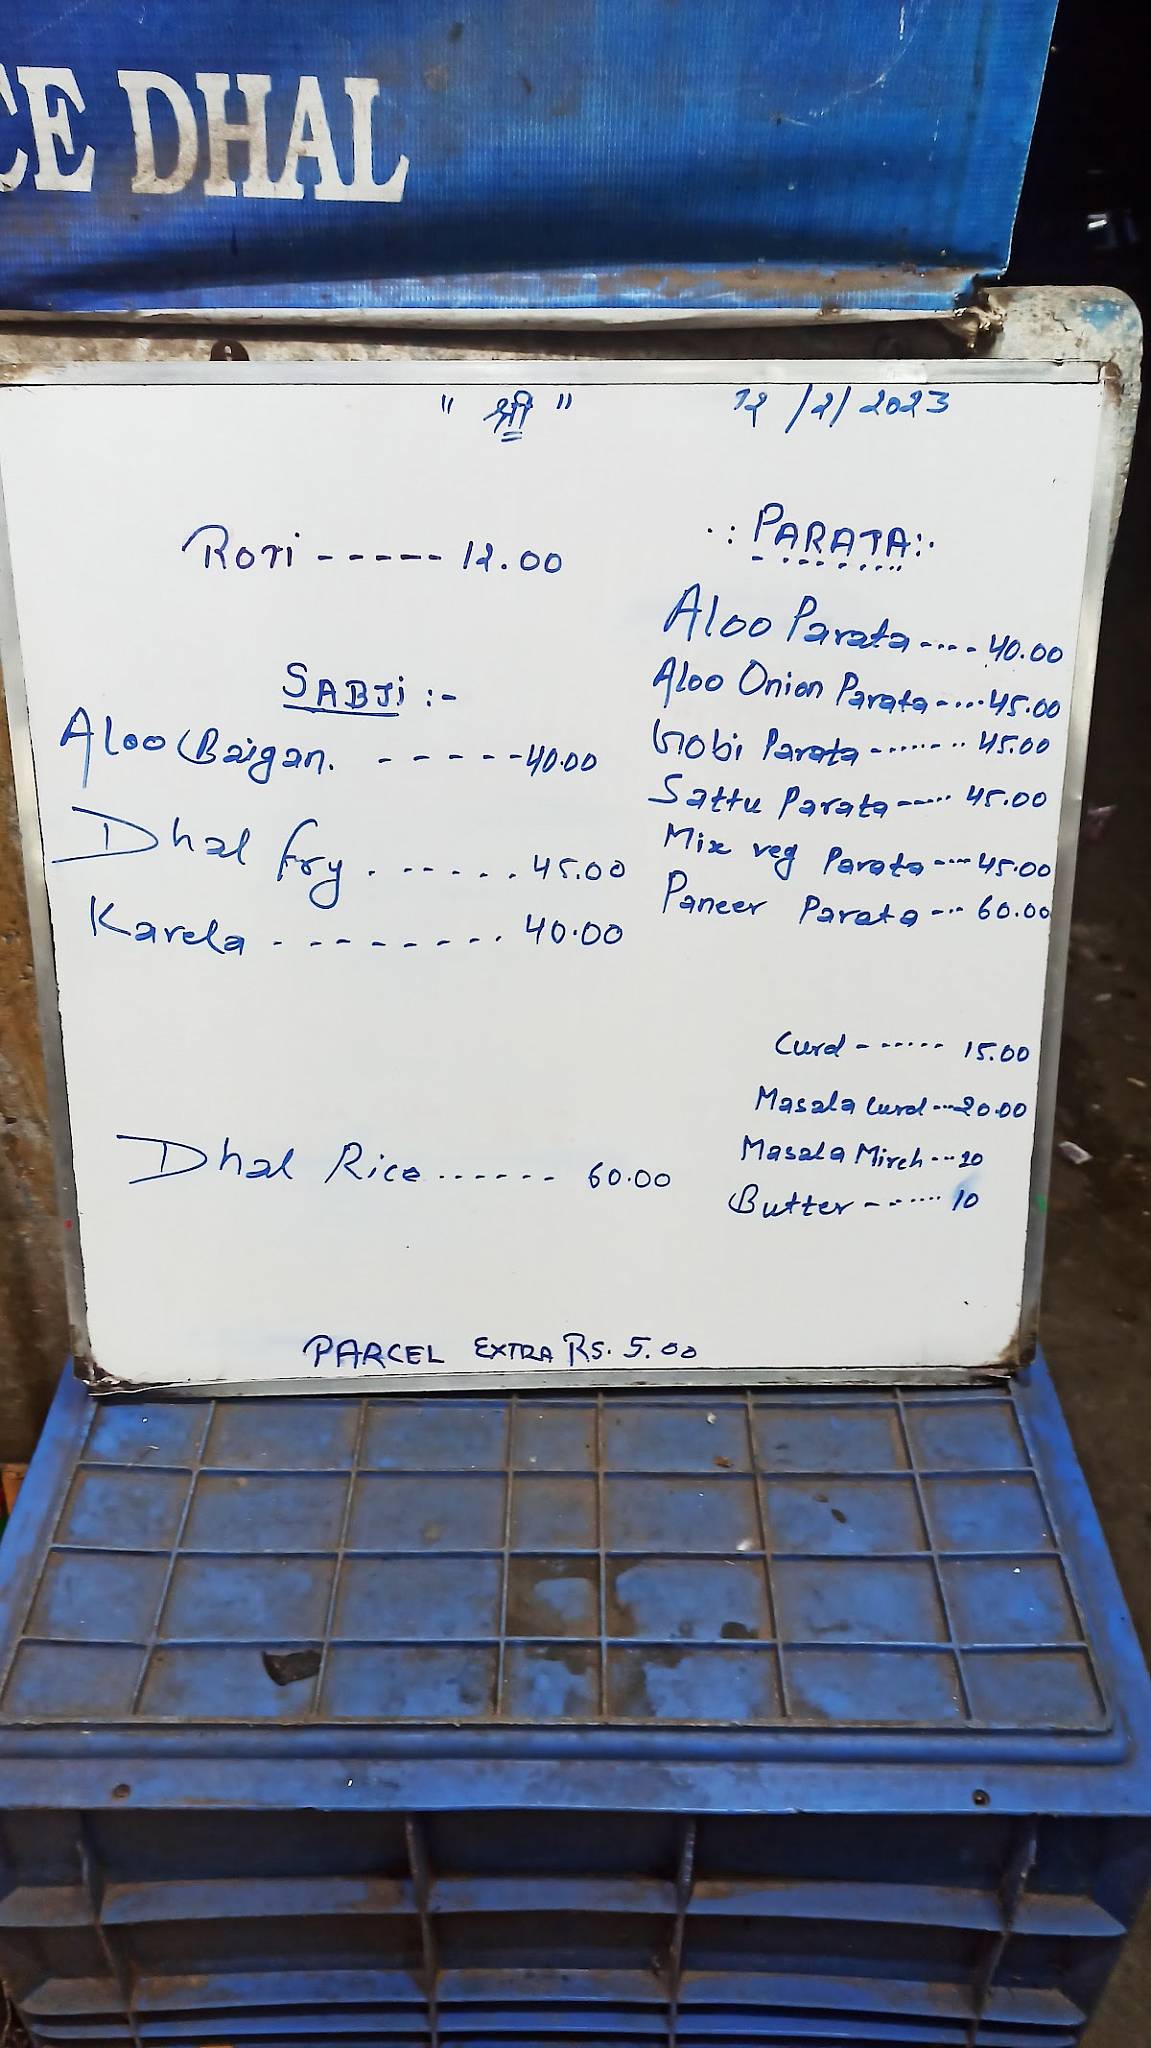 CE DHAL
" श्री " 12/2/2023
Roti ----- 12.00
SABJi :-
Aloo Baigan. ----- 40.00
Dhal fry . ..... 45.00
Karela -------- 40.00
Dhal Rice ...... 60.00
.: PARATA :.
Aloo Parata ---- 40.00
Aloo Onion Parata ---- 45.00
Gobi Parata ------- 45.00
Sattu Parata ----- 45.00
Mix veg Parata ---- 45.00
Paneer Parata --- 60.00
Curd ------ 15.00
Masala Curd --- 20.00
Masala Mirch --- 20
Butter ------ 10
PARCEL EXTRA RS. 5.00